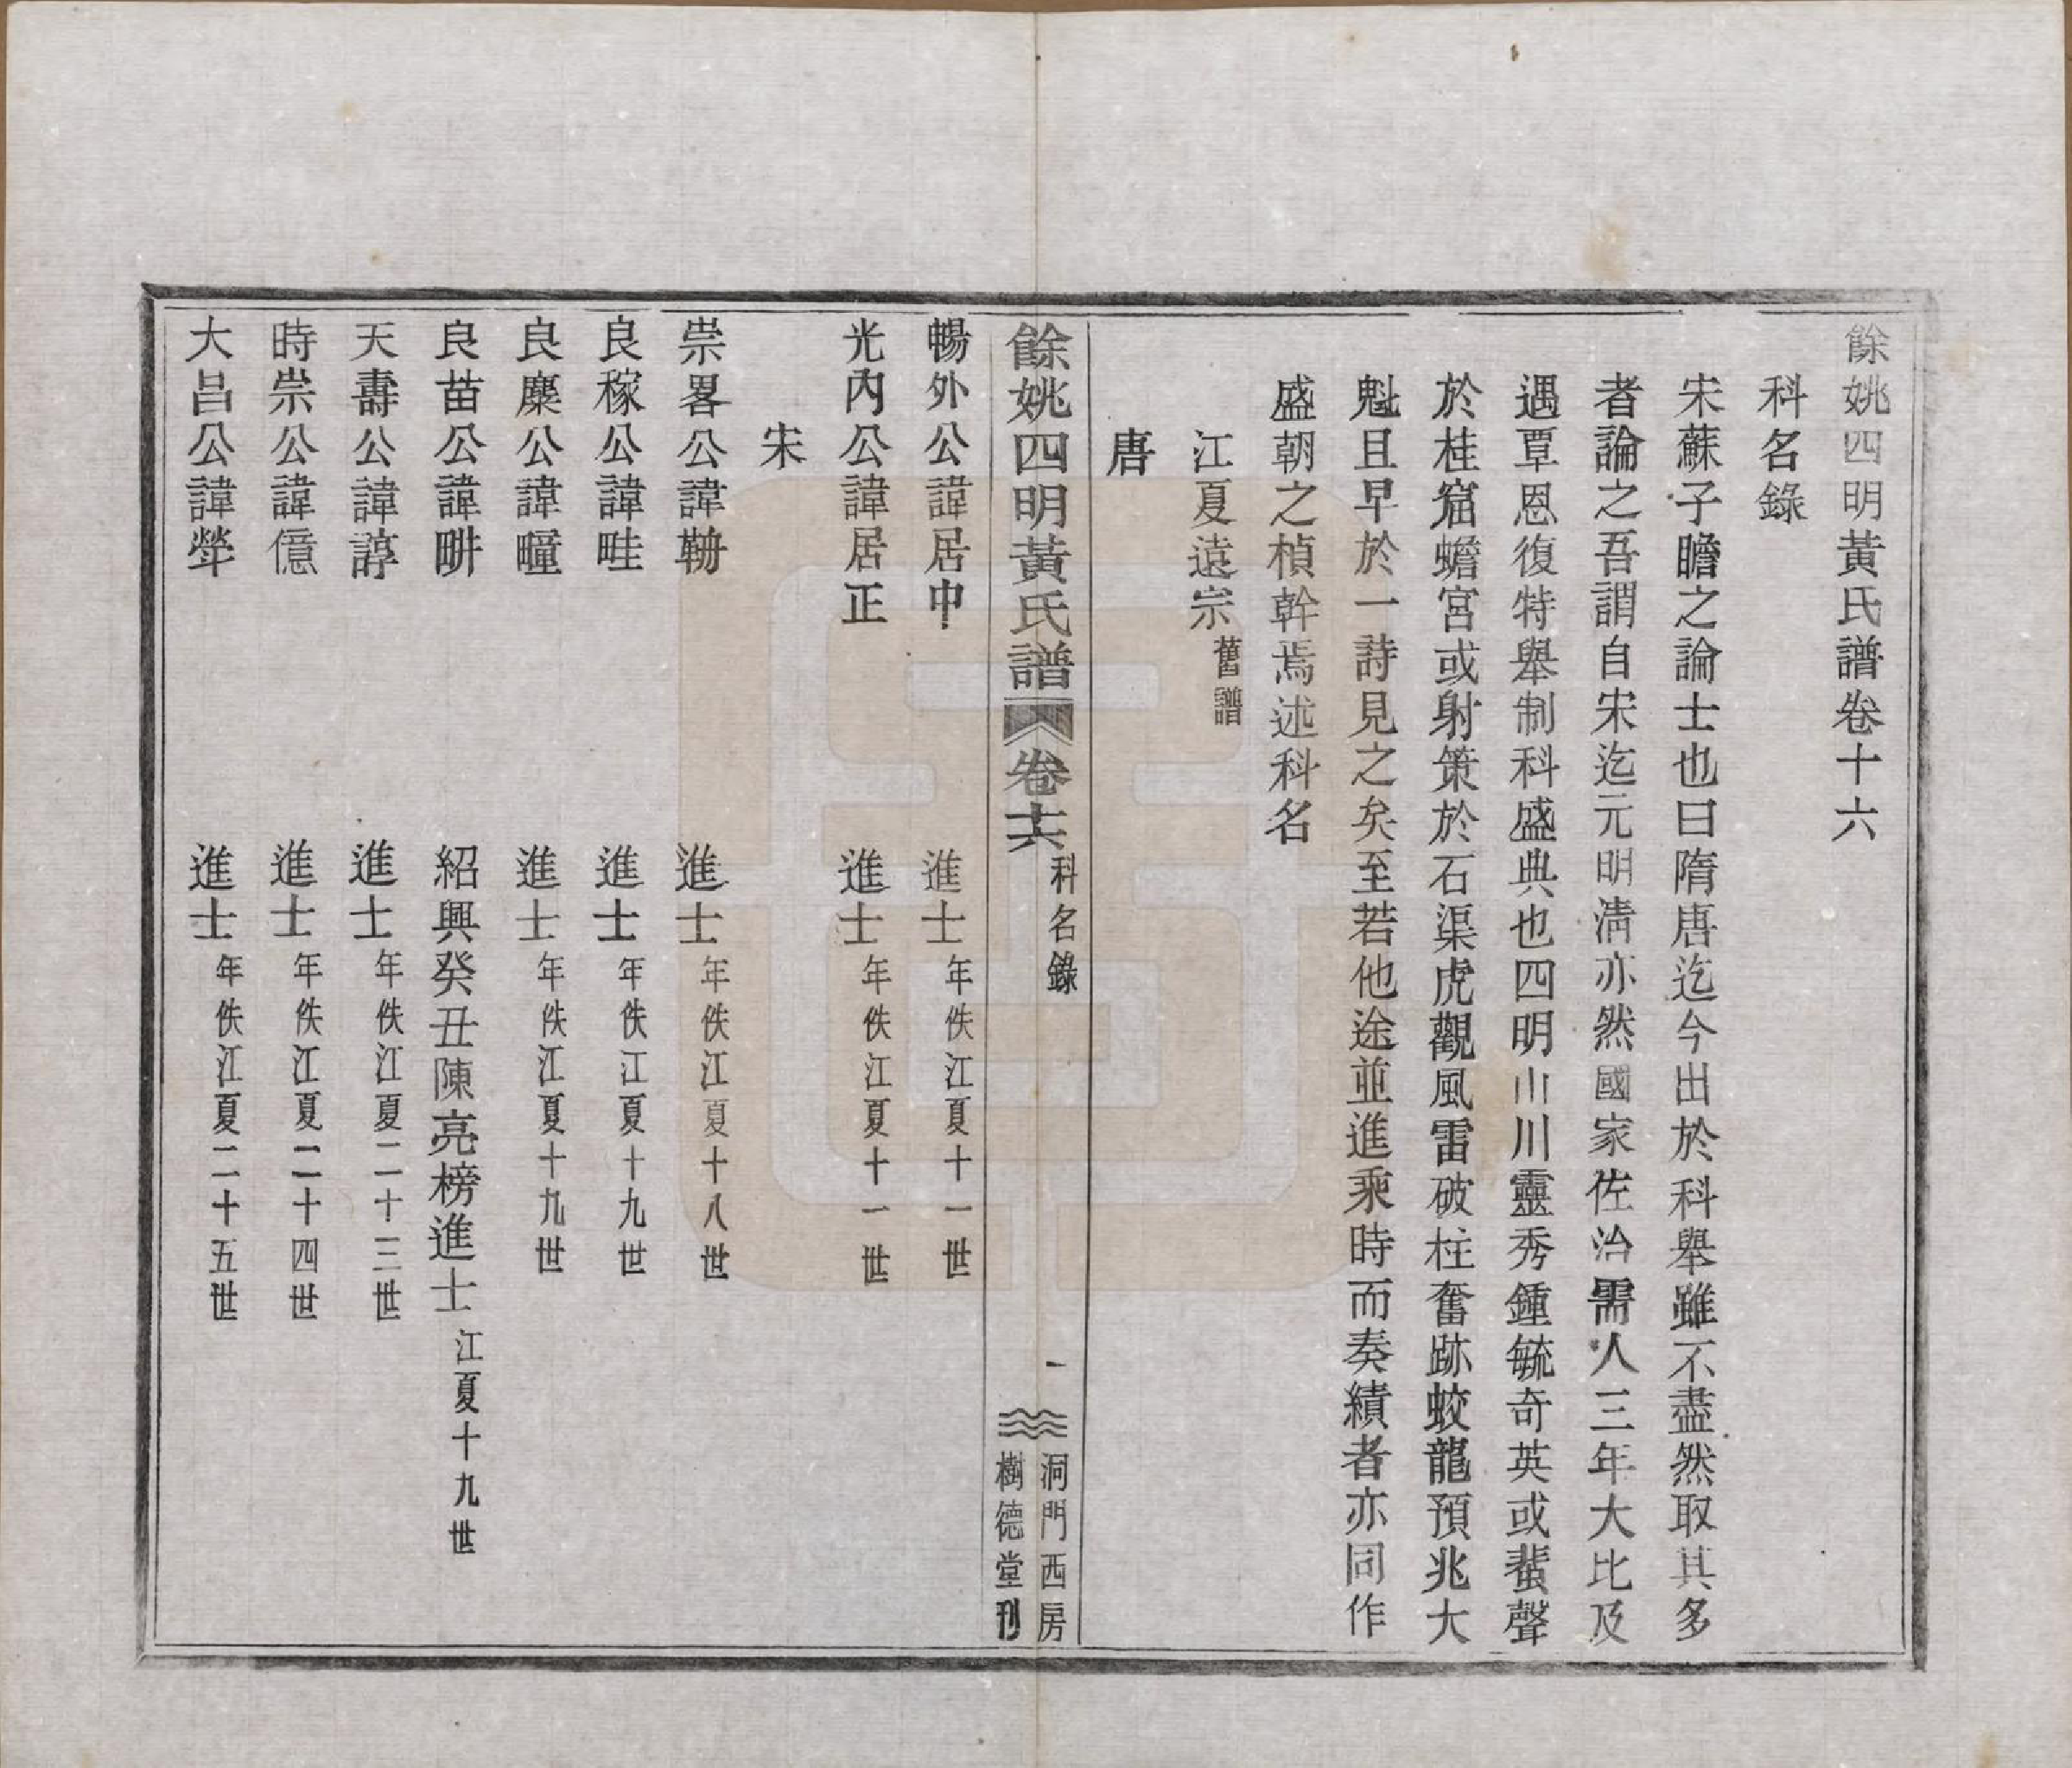 餘姚四明黃氏譜卷十六
科名錄
宋蘇子瞻之論士也曰隋唐迄今出於科舉雖不盡然取其多
者論之吾謂自宋迄元明淸亦然國家佐治需人三年大比及
遇覃恩復特舉制科盛典也四明山川靈秀鍾毓奇英或蜚聲
於桂窟蟾宮或射策於石渠虎觀風雷破柱奮跡蛟龍預兆大
魁且早於一詩見之矣至若他途並進乘時而奏績者亦同作
盛朝之楨幹焉述科名
江夏遠宗舊譜
唐
餘姚四明黃氏譜 卷十六 科名錄 一 洞門西房
樹德堂刊
暢外公諱居中 進士年佚江夏十一世
光內公諱居正 進士年佚江夏十一世
宋
崇畧公諱勄 進士年佚江夏十八世
良稼公諱畦 進士年佚江夏十九世
良麇公諱疃 進士年佚江夏十九世
良苗公諱畊 紹興癸丑陳亮榜進士江夏十九世
天壽公諱諄 進士年佚江夏二十三世
時崇公諱億 進士年佚江夏二十四世
大昌公諱犖 進士年佚江夏二十五世